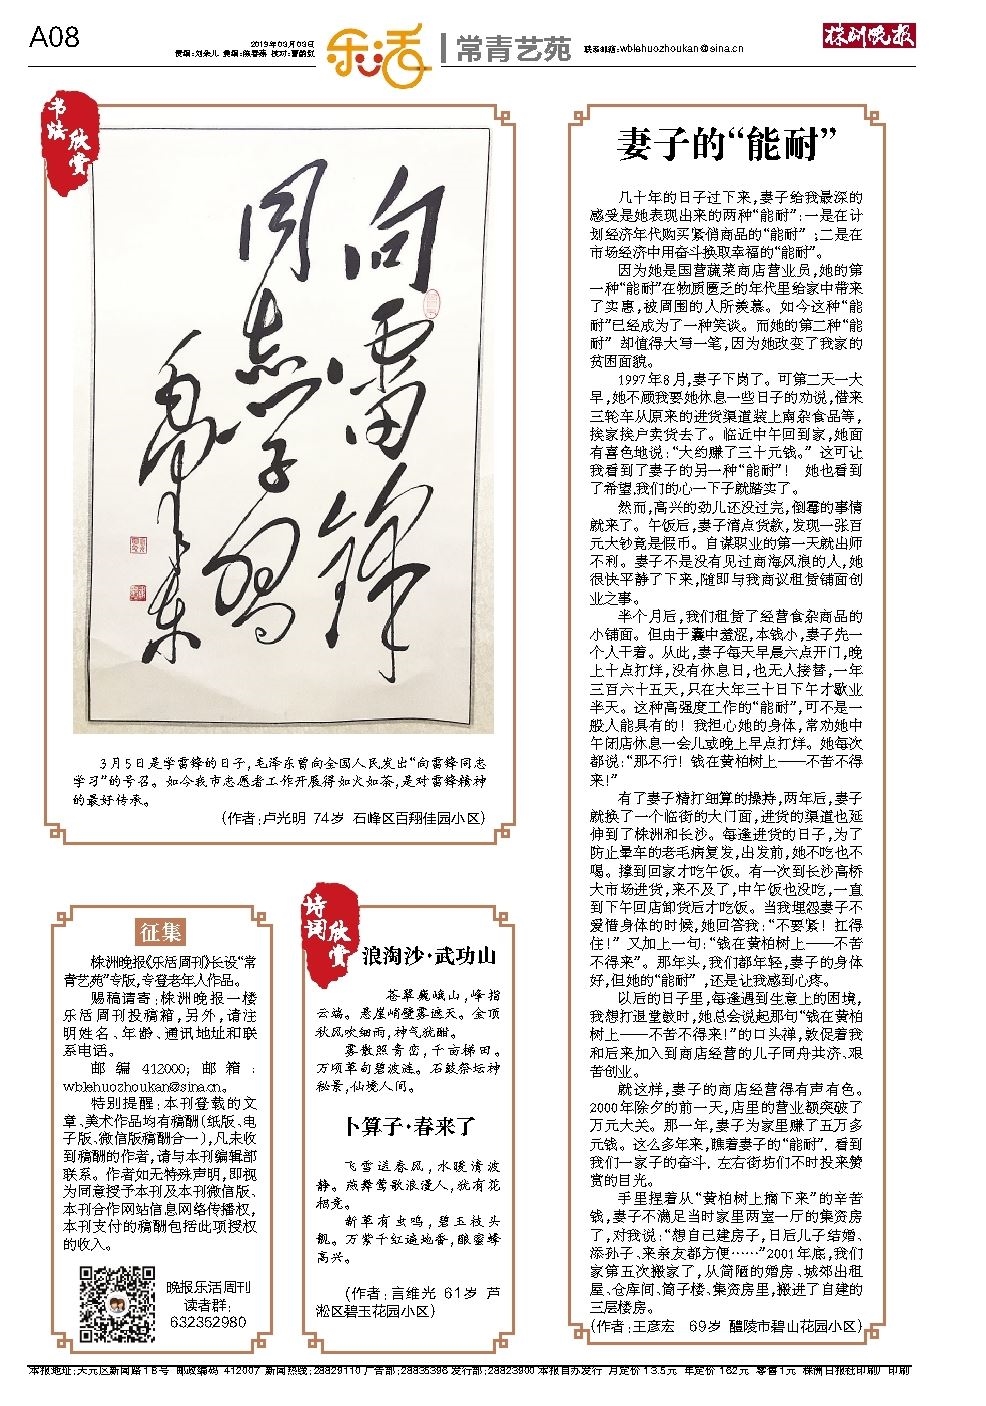 A08
2019年03月03日
责编：刘朵儿 美编：陈春燕 校对：曹韵红
乐活
常青艺苑
联系邮箱：wblehuozhoukan@sina.cn
株洲晚报
书法
欣赏
向雷锋
同志学习
毛泽东
3月5日是学雷锋的日子，毛泽东曾向全国人民发出“向雷锋同志
学习”的号召。如今我市志愿者工作开展得如火如荼，是对雷锋精神
的最好传承。
（作者：卢光明 74岁 石峰区百翔佳园小区）
征集
株洲晚报《乐活周刊》长设“常
青艺苑”专版，专登老年人作品。
赐稿请寄：株洲晚报一楼
乐活周刊投稿箱，另外，请注
明姓名、年龄、通讯地址和联
系电话。
邮编 412000；邮箱：
wblehuozhoukan@sina.cn。
特别提醒：本刊登载的文
章、美术作品均有稿酬（纸版、电
子版、微信版稿酬合一），凡未收
到稿酬的作者，请与本刊编辑部
联系。作者如无特殊声明，即视
为同意授予本刊及本刊微信版、
本刊合作网站信息网络传播权，
本刊支付的稿酬包括此项授权
的收入。
晚报乐活周刊
读者群：
632352980
诗词
欣赏
浪淘沙·武功山
苍翠巍峨山，峰指
云端。悬崖峭壁雾遮天。金顶
秋风吹细雨，神气犹酣。
雾散照青峦，千亩梯田。
万顷草甸碧波涟。石鼓祭坛神
秘景，仙境人间。
卜算子·春来了
飞雪送春风，水暖清波
静。燕舞莺歌浪漫人，犹有花
相竞。
新草有虫鸣，碧玉枝头
靓。万紫千红遍地香，酿蜜蜂
高兴。
（作者：言维光 61岁 芦
淞区碧玉花园小区）
妻子的“能耐”
几十年的日子过下来，妻子给我最深的
感受是她表现出来的两种“能耐”：一是在计
划经济年代购买紧俏商品的“能耐”；二是在
市场经济中用奋斗换取幸福的“能耐”。
因为她是国营蔬菜商店营业员，她的第
一种“能耐”在物质匮乏的年代里给家中带来
了实惠，被周围的人所羡慕。如今这种“能
耐”已经成为了一种笑谈。而她的第二种“能
耐”却值得大写一笔，因为她改变了我家的
贫困面貌。
1997年8月，妻子下岗了。可第二天一大
早，她不顾我要她休息一些日子的劝说，借来
三轮车从原来的进货渠道装上南杂食品等，
挨家挨户卖货去了。临近中午回到家，她面
有喜色地说：“大约赚了三十元钱。”这可让
我看到了妻子的另一种“能耐”！ 她也看到
了希望，我们的心一下子就踏实了。
然而，高兴的劲儿还没过完，倒霉的事情
就来了。午饭后，妻子清点货款，发现一张百
元大钞竟是假币。自谋职业的第一天就出师
不利。妻子不是没有见过商海风浪的人，她
很快平静了下来，随即与我商议租赁铺面创
业之事。
半个月后，我们租赁了经营食杂商品的
小铺面。但由于囊中羞涩，本钱小，妻子先一
个人干着。从此，妻子每天早晨六点开门，晚
上十点打烊，没有休息日，也无人接替，一年
三百六十五天，只在大年三十日下午才歇业
半天。这种高强度工作的“能耐”，可不是一
般人能具有的！我担心她的身体，常劝她中
午闭店休息一会儿或晚上早点打烊。她每次
都说：“那不行！钱在黄柏树上——不苦不得
来！”
有了妻子精打细算的操持，两年后，妻子
就换了一个临街的大门面，进货的渠道也延
伸到了株洲和长沙。每逢进货的日子，为了
防止晕车的老毛病复发，出发前，她不吃也不
喝。撑到回家才吃午饭。有一次到长沙高桥
大市场进货，来不及了，中午饭也没吃，一直
到下午回店卸货后才吃饭。当我埋怨妻子不
爱惜身体的时候，她回答我：“不要紧！扛得
住！”又加上一句：“钱在黄柏树上——不苦
不得来”。那年头，我们都年轻，妻子的身体
好，但她的“能耐”，还是让我感到心疼。
以后的日子里，每逢遇到生意上的困境，
我想打退堂鼓时，她总会说起那句“钱在黄柏
树上——不苦不得来！”的口头禅，敦促着我
和后来加入到商店经营的儿子同舟共济、艰
苦创业。
就这样，妻子的商店经营得有声有色。
2000年除夕的前一天，店里的营业额突破了
万元大关。那一年，妻子为家里赚了五万多
元钱。这么多年来，瞧着妻子的“能耐”，看到
我们一家子的奋斗，左右街坊们不时投来赞
赏的目光。
手里捏着从“黄柏树上摘下来”的辛苦
钱，妻子不满足当时家里两室一厅的集资房
了，对我说：“想自己建房子，日后儿子结婚、
添孙子、来亲友都方便……”2001年底，我们
家第五次搬家了，从简陋的婚房、城郊出租
屋、仓库间、筒子楼、集资房里，搬进了自建的
三层楼房。
（作者：王彦宏 69岁 醴陵市碧山花园小区）
本报地址：天元区新闻路18号 邮政编码 412007 新闻热线：28829110 广告部：28835396 发行部：28823900 本报自办发行 月定价13.5元 年定价162元 零售1元 株洲日报社印刷厂印刷